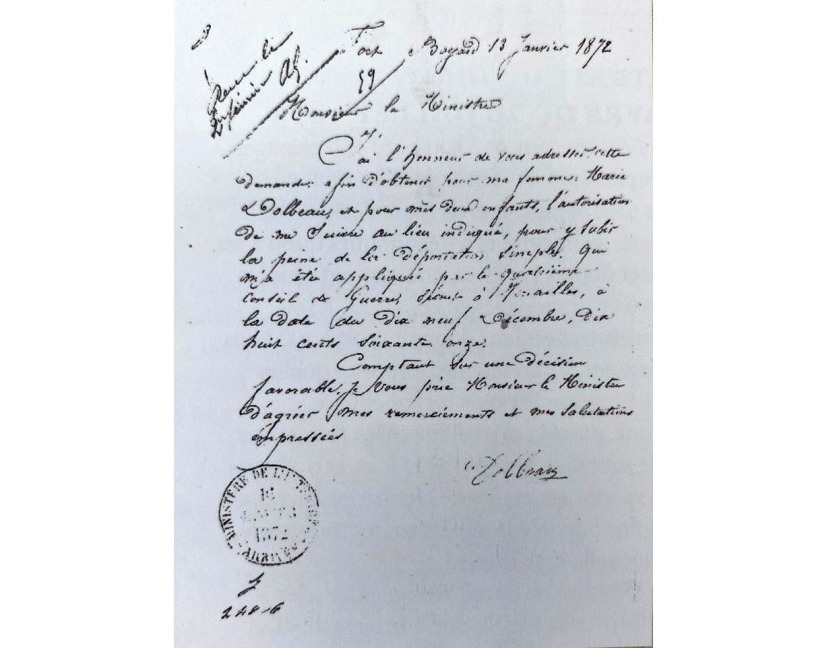 Fort Boyard 13 Janvier 1872
59
Monsieur le Ministre
J'ai l'honneur de vous adresser cette
demande afin d'obtenir pour ma femme Marie
Dolbeau, et pour mes deux enfants, l'autorisation
de me suivre au lieu indiqué, pour y subir
la peine de la déportation simple, qui
m'a étée appliquée par le
Conseil de Guerre, à Versailles, à
la date du dix neuf Décembre, dix
huit cents soixante onze.
Comptant sur une décision
favorable, je vous prie Monsieur le Ministre
d'agréer mes remerciements et mes salutations
empressées
Dolbeau
MINISTÈRE DE L'INTÉRIEUR
1872
ARRIVÉE